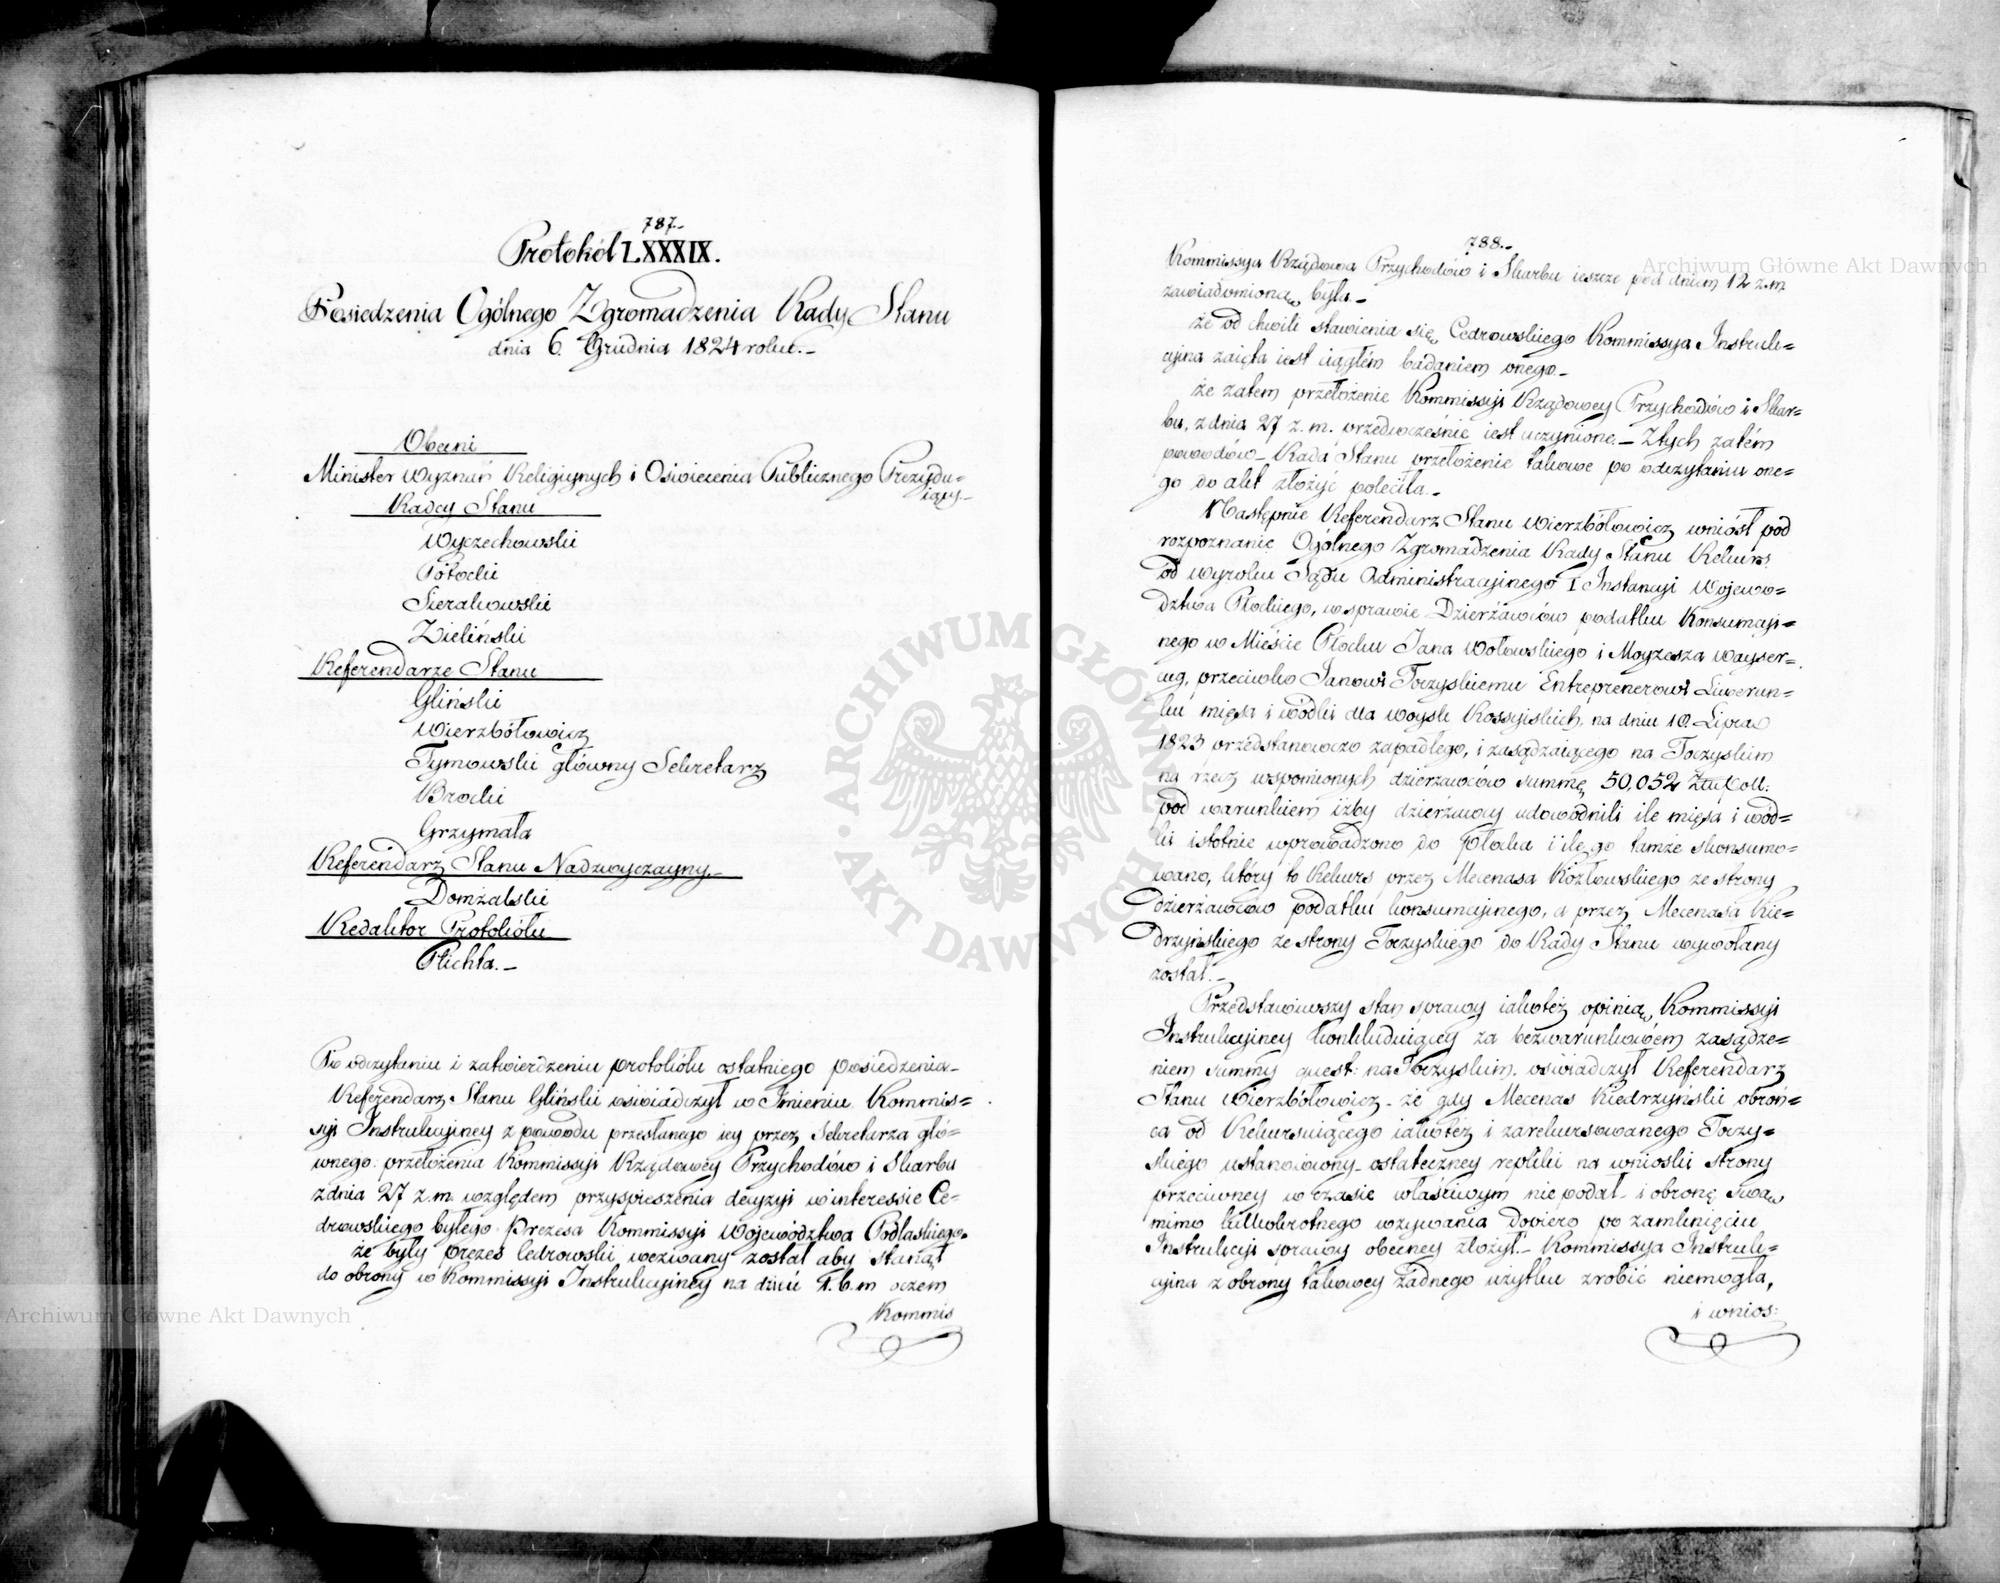 787.-
Protokół LXXXIX.
Posiedzenia Ogólnego Zgromadzenia Rady Stanu
dnia 6. Grudnia 1824 roku.-
Obecni
Minister Wyznań Religijnych i Oświecenia Publicznego Prezydu-
iący.-
Radcy Stanu
Wyczechowski
Potocki
Sierakowski
Zieliński
Referendarze Stanu
Gliński
Wierzbołowicz
Tymowski główny Sekretarz
Brocki
Grzymała
Referendarz Stanu Nadzwyczayny.-
Domżalski
Redaktor Protokółu
Plichta.-
Po odczytaniu i zatwierdzeniu protokółu ostatniego posiedzenia-
Referendarz Stanu Gliński oświadczył w Imieniu Kommis=
syi Instrukcyiney z powodu przesłanego iey przez Sekretarza głó=
wnego przełożenia Kommissyi Rządowey Przychodów i Skarbu
z dnia 27 z. m. względem przyspieszenia decyzyi w interessie Ce-
drowskiego byłego Prezesa Kommissyi Województwa Podlaskiego.
że były prezes Cedrowski wezwany został aby stanął
do obrony w Kommissyi Instrukcyiney na dniu 1. b. m oczem
Kommis
788.-
Kommissya Rządowa Przychodów i Skarbu ieszcze pod dniem 12 z. m
zawiadomioną była.-
że od chwili stawienia się Cedrowskiego Kommissya Instruk=
cyina zaięta iest ciągłem badaniem onego-
że zatem przełożenie Kommissyi Rządowey Przychodów i Skar=
bu, z dnia 27 z. m. przedwcześnie iest uczynione.- Z tych zatém
powodów- Rada Stanu przełożenie takowe po odczytaniu one=
go do akt złożyć poleciła.-
Następnie Referendarz Stanu Wierzbołowicz wniósł pod
rozpoznanie Ogólnego Zgromadzenia Rady Stanu Rekurs
od wyroku Sądu Administracyinego I Instancyi Wojewo=
dztwa Płockiego, w sprawie Dzierżawców podatku Konsumcyi=
nego w Mieście Płocku Jana Wołowskiego i Moyzesza Wayser=
cug, przeciwko Janowi Torzyskiemu Entreprenerowi Liwerun=
ku mięsa i wódki dla woysk Rossyiskich, na dniu 10. Lipca
1823 przedstanowczo zapadłego, i zasądzaiącego na Torzyskim
na rzecz wspomionych dzierżawców summę 50,052 Złt. Poll:
pod warunkiem iżby dzierżawcy udowodnili ile mięsa i wód=
ki istotnie wprowadzono do Płocka i ile go tamże skonsumo=
wano, który to Rekurs przez Mecenasa Kozłowskiego ze strony
dzierżawców podatku konsumcyinego, a przez Mecenasa Kie=
drzyńskiego ze strony Torzyskiego do Rady Stanu wywołany
został.-
Przedstawiwszy stan sprawy iakoteż opinią Kommissyi
Instrukcyiney konkluduiącey za bezwarunkowém zasądze=
niem summy quest: na Torzyskim, oświadczył Referendarz
Stanu Wierzbołowicz- że gdy Mecenas Kiedrzyński obroń=
ca od Rekursuiącego iakoteż i zarekursowanego Torzy=
skiego ustanowiony- ostateczney repliki na wnioski strony
przeciwney w czasie właściwym nie podał- i obronę swą
mimo kilkokrotnego wzywania dopiero po zamknięciu
Instrukcyi sprawy obecney złożył- Kommissya Instruk=
cyina z obrony takowey żadnego użytku zrobić niemogła,
i wnios:
Archiwum Główne Akt Dawnych
Archiwum Główne Akt Dawnych
· ARCHIWUM GŁÓWNE · AKT DAWNYCH